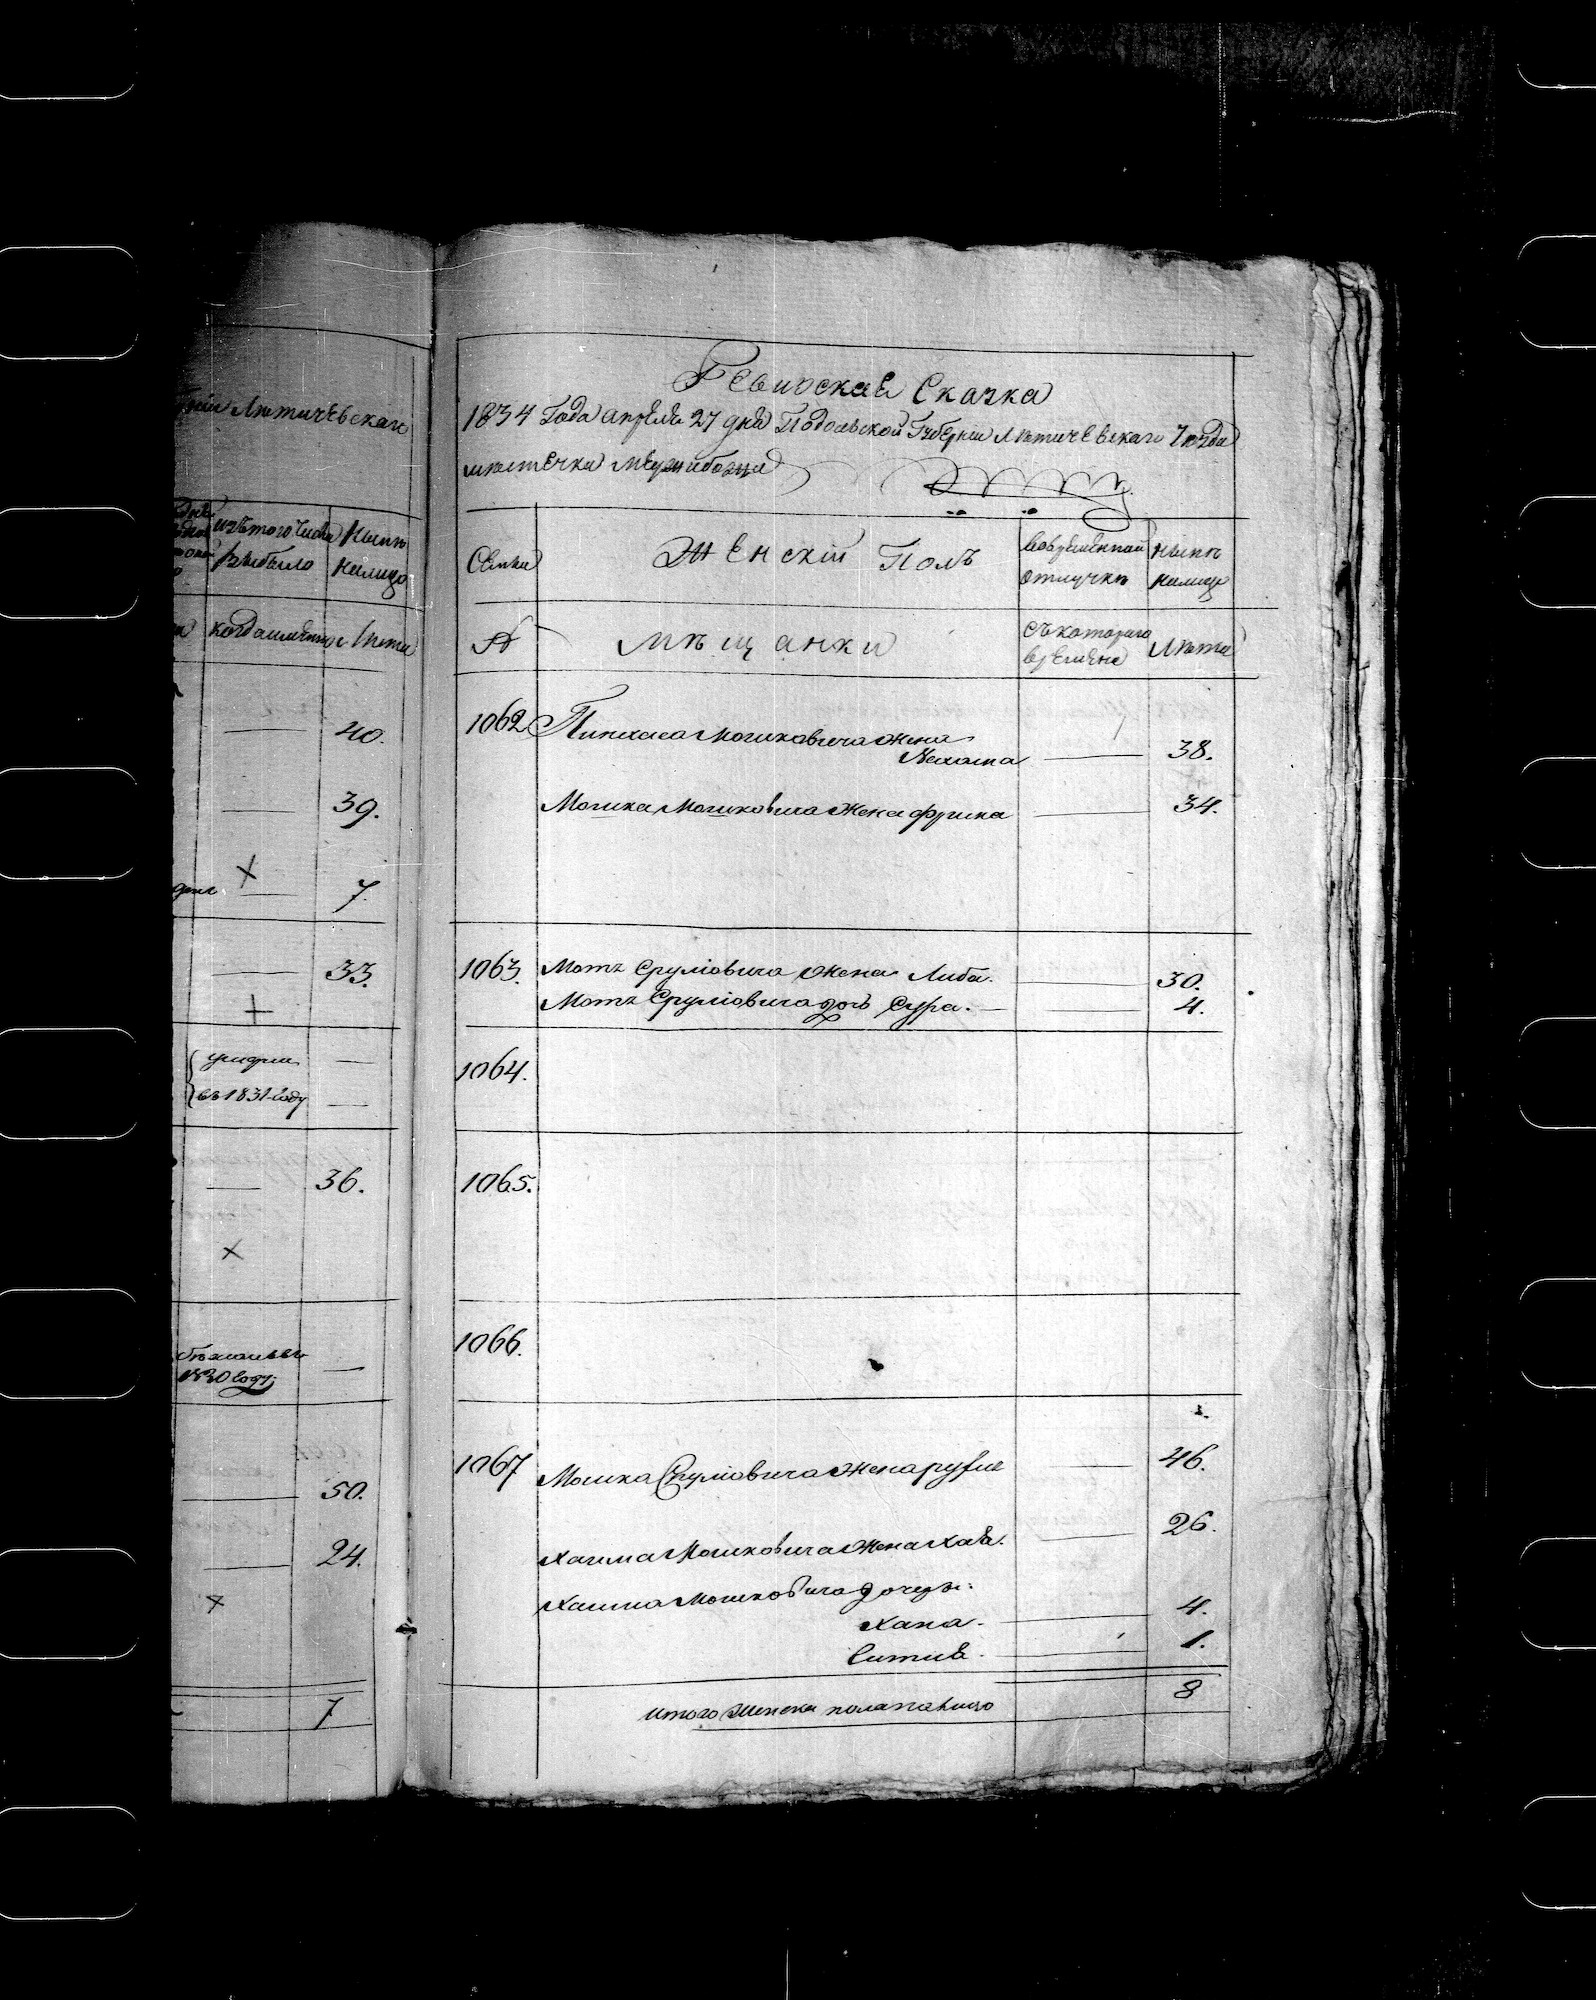 ніи Лѣтичевскаго
изъ того числа
выбыло
Нынѣ
на лицо
когда именно
Лѣта
40.
39.
7.
33.
умерли
въ 1831 году
36.
1830 году
50.
24.
7
Ревиская Сказка
1834 Года апреля 27 дня Подольской Губерніи Лѣтичевскаго Уезда
мѣстечка Межибожа
Семьи
Женскій Полъ
во временной
отлучкѣ
нынѣ
на лице
№
мѣщанки
съ которого
времени
Лѣта
1062
Пинхаса Мошковича жена
Нехама
38.
Мошка Мошковича жена фрима
34.
1063.
Мотя Сруліовича жена Либа.
30.
Мотя Сруліовича дочь Сура.
4.
1064.
1065.
1066.
1067
Мошка Сруліовича жена
46.
26.
Хаима Мошковича жена Хая.
Хаима Мошковича дочери:
Хана.
4.
1.
Итого женска пола на лицо
8